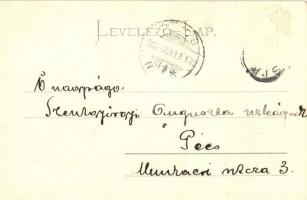 LEVELEZŐ-LAP.
Ő nagysága
Szentgyörgyi Auguszta
Pécs
Munkácsi utcza 3.